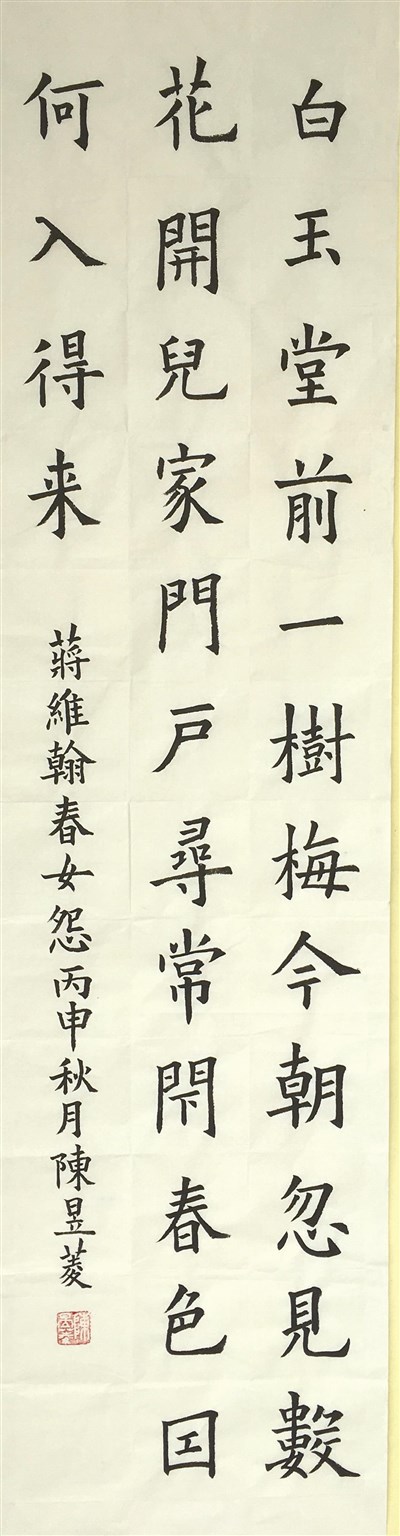 白玉堂前一樹梅今朝忽見數
花開兒家門戶尋常閇春色囙
何入得来
蔣維翰春女怨丙申秋月陳昱菱